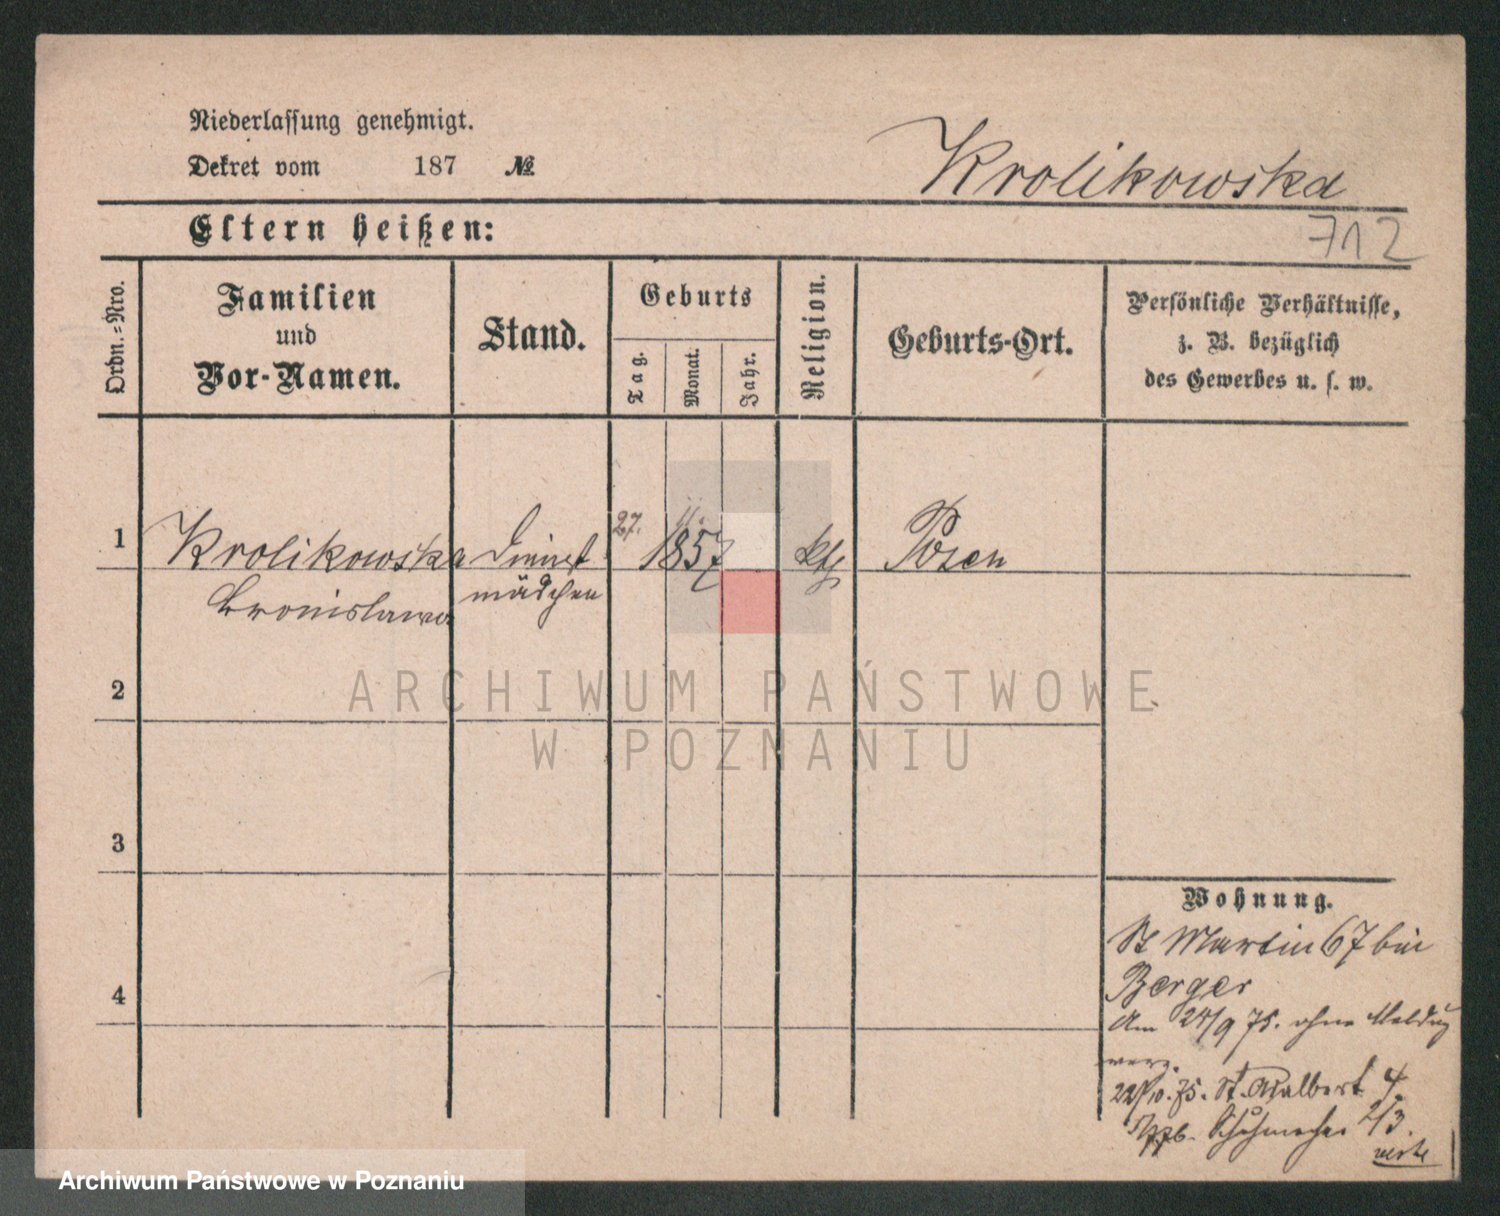 Niederlassung genehmigt.
Dekret vom 187 №
Krolikowska
Eltern heißen:
712
Ordn.=Nro.
Familien
und
Vor-Namen.
Stand.
Geburts
Tag.
Monat.
Jahr.
Religion.
Geburts-Ort.
Persönliche Verhältnisse,
z. B. bezüglich
des Gewerbes u. s. w.
1
Krolikowska
Bronislawa
Dienst
mädchen
27. 11.
1857
kth
Posen
2
ARCHIWUM PAŃSTWOWE
W POZNANIU
3
4
Wohnung.
St Martin 67 bei
Berger
Am 24/9 75. ohne Meldung
verz.
22/10. 75. St. Adalbert 4.
Schuhmacher 2/3.
Archiwum Państwowe w Poznaniu